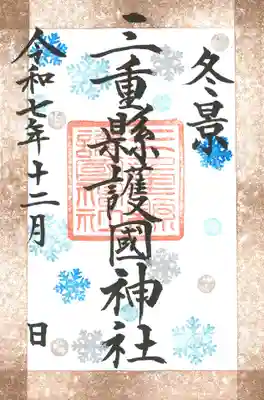 冬景
三重縣護國神社
令和七年十二月 日